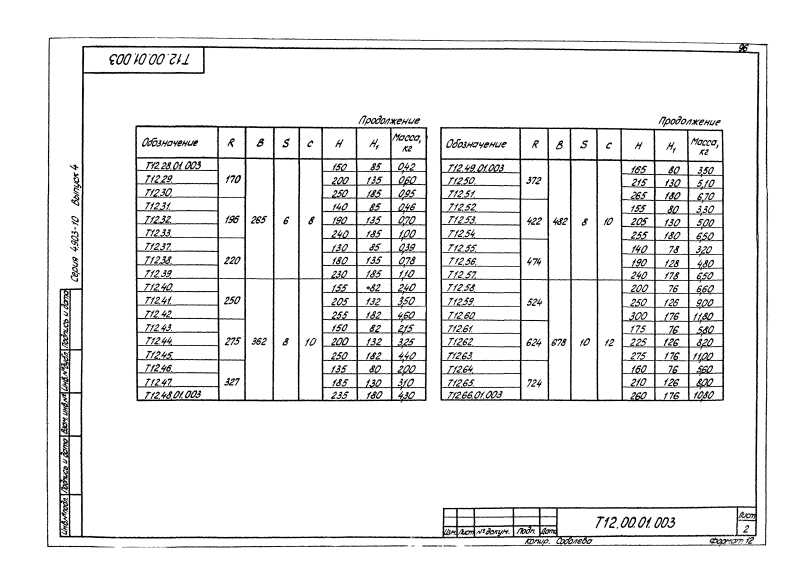 96
Т12.00.01.003
Продолжение
Обозначение R B S c H H₁ Масса, кг
Т12.28.01.003 170 265 6 8 150 85 0,42
Т12.29. 200 135 0,60
Т12.30. 250 185 0,95
Т12.31. 196 140 85 0,46
Т12.32. 190 135 0,70
Т12.33. 240 185 1,00
Т12.37. 220 130 85 0,39
Т12.38. 180 135 0,78
Т12.39. 230 185 1,10
Т12.40. 250 362 8 10 155 82 2,40
Т12.41. 205 132 3,50
Т12.42. 255 182 4,60
Т12.43. 275 150 82 2,15
Т12.44. 200 132 3,25
Т12.45. 250 182 4,40
Т12.46. 327 135 80 2,00
Т12.47. 185 130 3,10
Т12.48.01.003 235 180 4,30
Продолжение
Обозначение R B S c H H₁ Масса, кг
Т12.49.01.003 372 482 8 10 165 80 3,50
Т12.50. 215 130 5,10
Т12.51. 265 180 6,70
Т12.52. 422 155 80 3,30
Т12.53. 205 130 5,00
Т12.54. 255 180 6,50
Т12.55. 474 140 78 3,20
Т12.56. 190 128 4,80
Т12.57. 240 178 6,50
Т12.58. 524 678 10 12 200 76 6,60
Т12.59. 250 126 9,00
Т12.60. 300 176 11,80
Т12.61. 624 175 76 5,80
Т12.62. 225 126 8,20
Т12.63. 275 176 11,00
Т12.64. 724 160 76 5,60
Т12.65. 210 126 8,00
Т12.66.01.003 260 176 10,80
Серия 4.903-10 Выпуск 4
Инв.№подл. Подпись и дата Взам. инв.№ Инв.№дубл. Подпись и дата
Изм. Лист №докум. Подп. Дата
Т12.00.01.003
Лист
2
Копир. Соболева
Формат 12